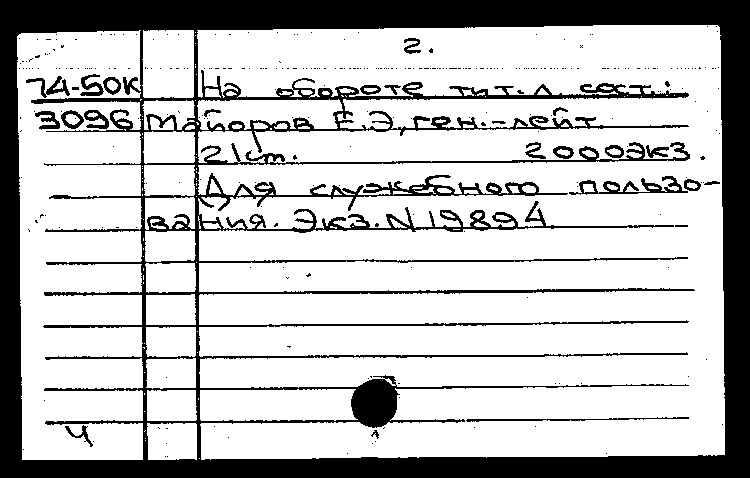 2.
74-50К На обороте тит. л. сост.:
3096 Майоров Е.Э, ген.-лейт.
21 cm. 2000 экз.
Для служебного пользо-
вания. Экз. N 19894
Ч